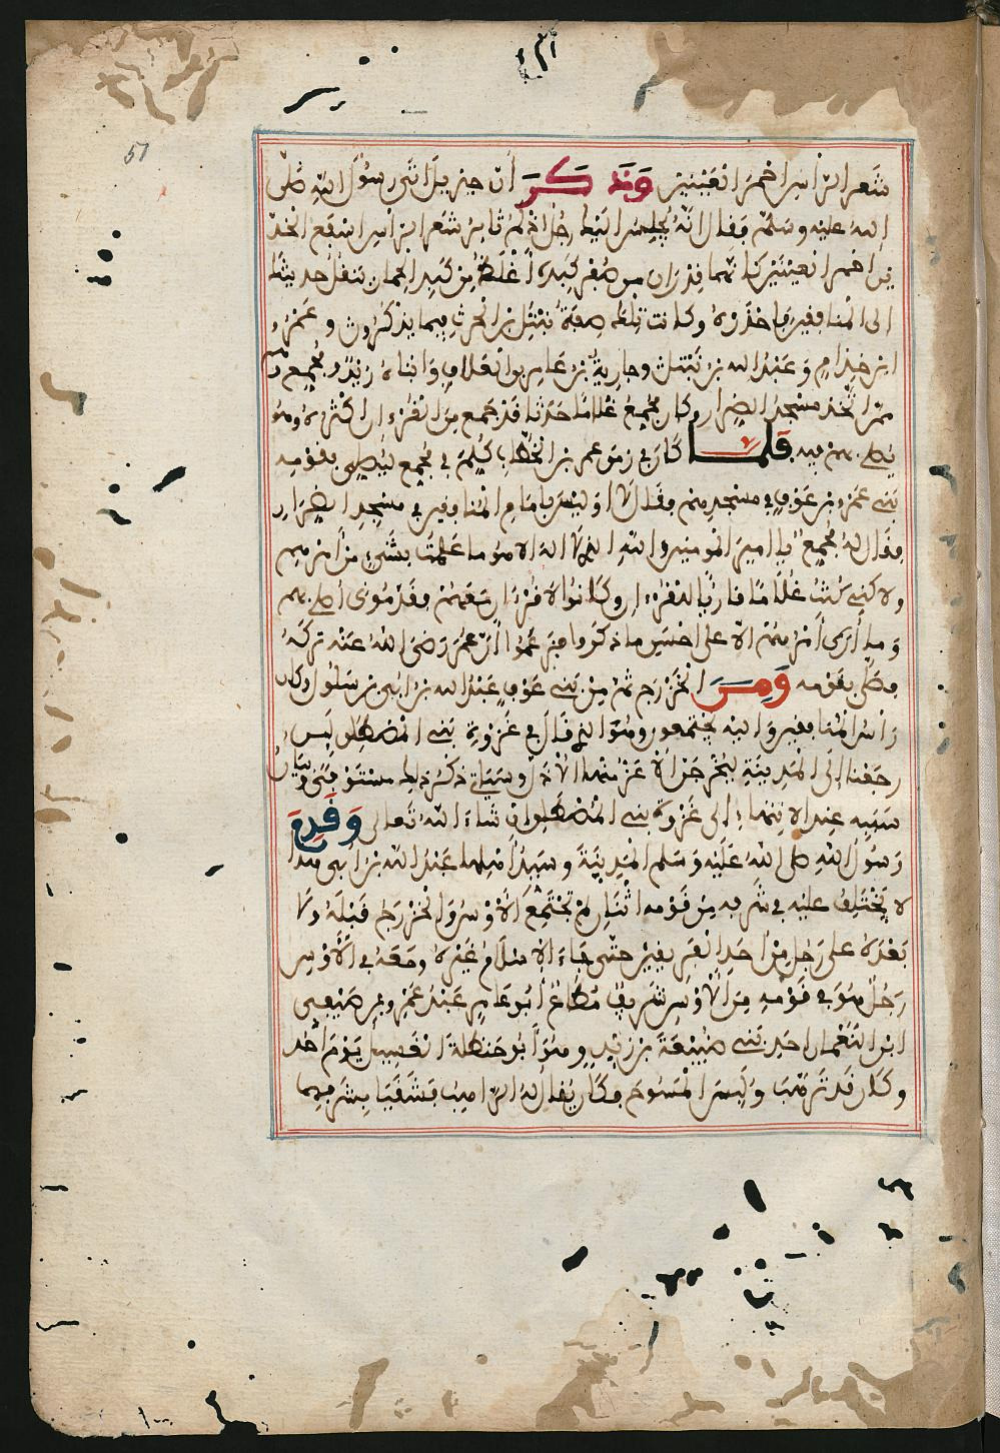 51
شعر الراس احمر العينين وَذكَرَ أن جبريل اتى رسول الله صلى
الله عليه وسلم فقال انه يجلس اليك رجل اذلم ثاير شعر الراس اسفع الخد
ين احمر العينين كانهما قدران من صفر كبده أغلظ من كبد الحمار ينقل حديثك
الى المنافقين فاحذره وكانت تلك صفة نبتل بن الحرث فيما يذكرون وعمرو
ابن خذام وعبد الله بن نبتل وجارية بن عامر بن العطاف وابناه زيد ومجمع
ممن اتخذ مسجد الضرار وكان مجمع غلاما حدثا قد جمع من القرءان اكثره وهو
يصلي بهم فيه فلمـــا كان في زمن عمر بن الخطاب كلم في مجمع ليصلي بقومه
بني عمرو بن عوف في مسجدهم فقال لا اوليس بامام المنافقين في مسجد الضرار
فقال له مجمع يا امير المومنين والله الذي لا اله الا هو ما علمت بشيء من أمرهم
ولاكني كنت غلاما قاريا للقرءان وكانوا لا قرءان معهم فقدموني أصلي بهم
وما أرى أمرهم الا على احسن ما ذكروا فزعموا أن عمر رضي الله عنه تركه
فصلى بقومه وَمِنَ الخزرج ثم من بني عوف عبد الله بن أبي بن سلول وكان
رأس المنافقين واليه يجتمعون وهو الذي قال في غزوة بني المصطلق ليس
رجعنا الى المدينة ليخرجن الأعز منها الأذل وسياتي ذكر ذلك مستوفى وبيان
سببه عند الانتهاء الى غزوة بني المصطلق ان شاء الله تعالى وَقَدِمَ
رسول الله صلى الله عليه وسلم المدينة وسيد أهلها عبد الله بن أبي هذا
لا يختلف عليه في شرفه من قومه اثنان لم تجتمع الأوس والخزرج قبله ولا
بعده على رجل من أحد الفريقين حتى جاء الاسلام غيره ومعه في الأوس
رجل هو في قومه من الأوس شريف مطاع أبو عامر عبد عمرو بن صيفي
ابن النعمان احد بني ضبيعة بن زيد وهو أبو حنظلة الغسيل يوم أحد
وكان قد ترهب ولبس المسوح فكان يقال له الراهب فشقيا بشرفهما